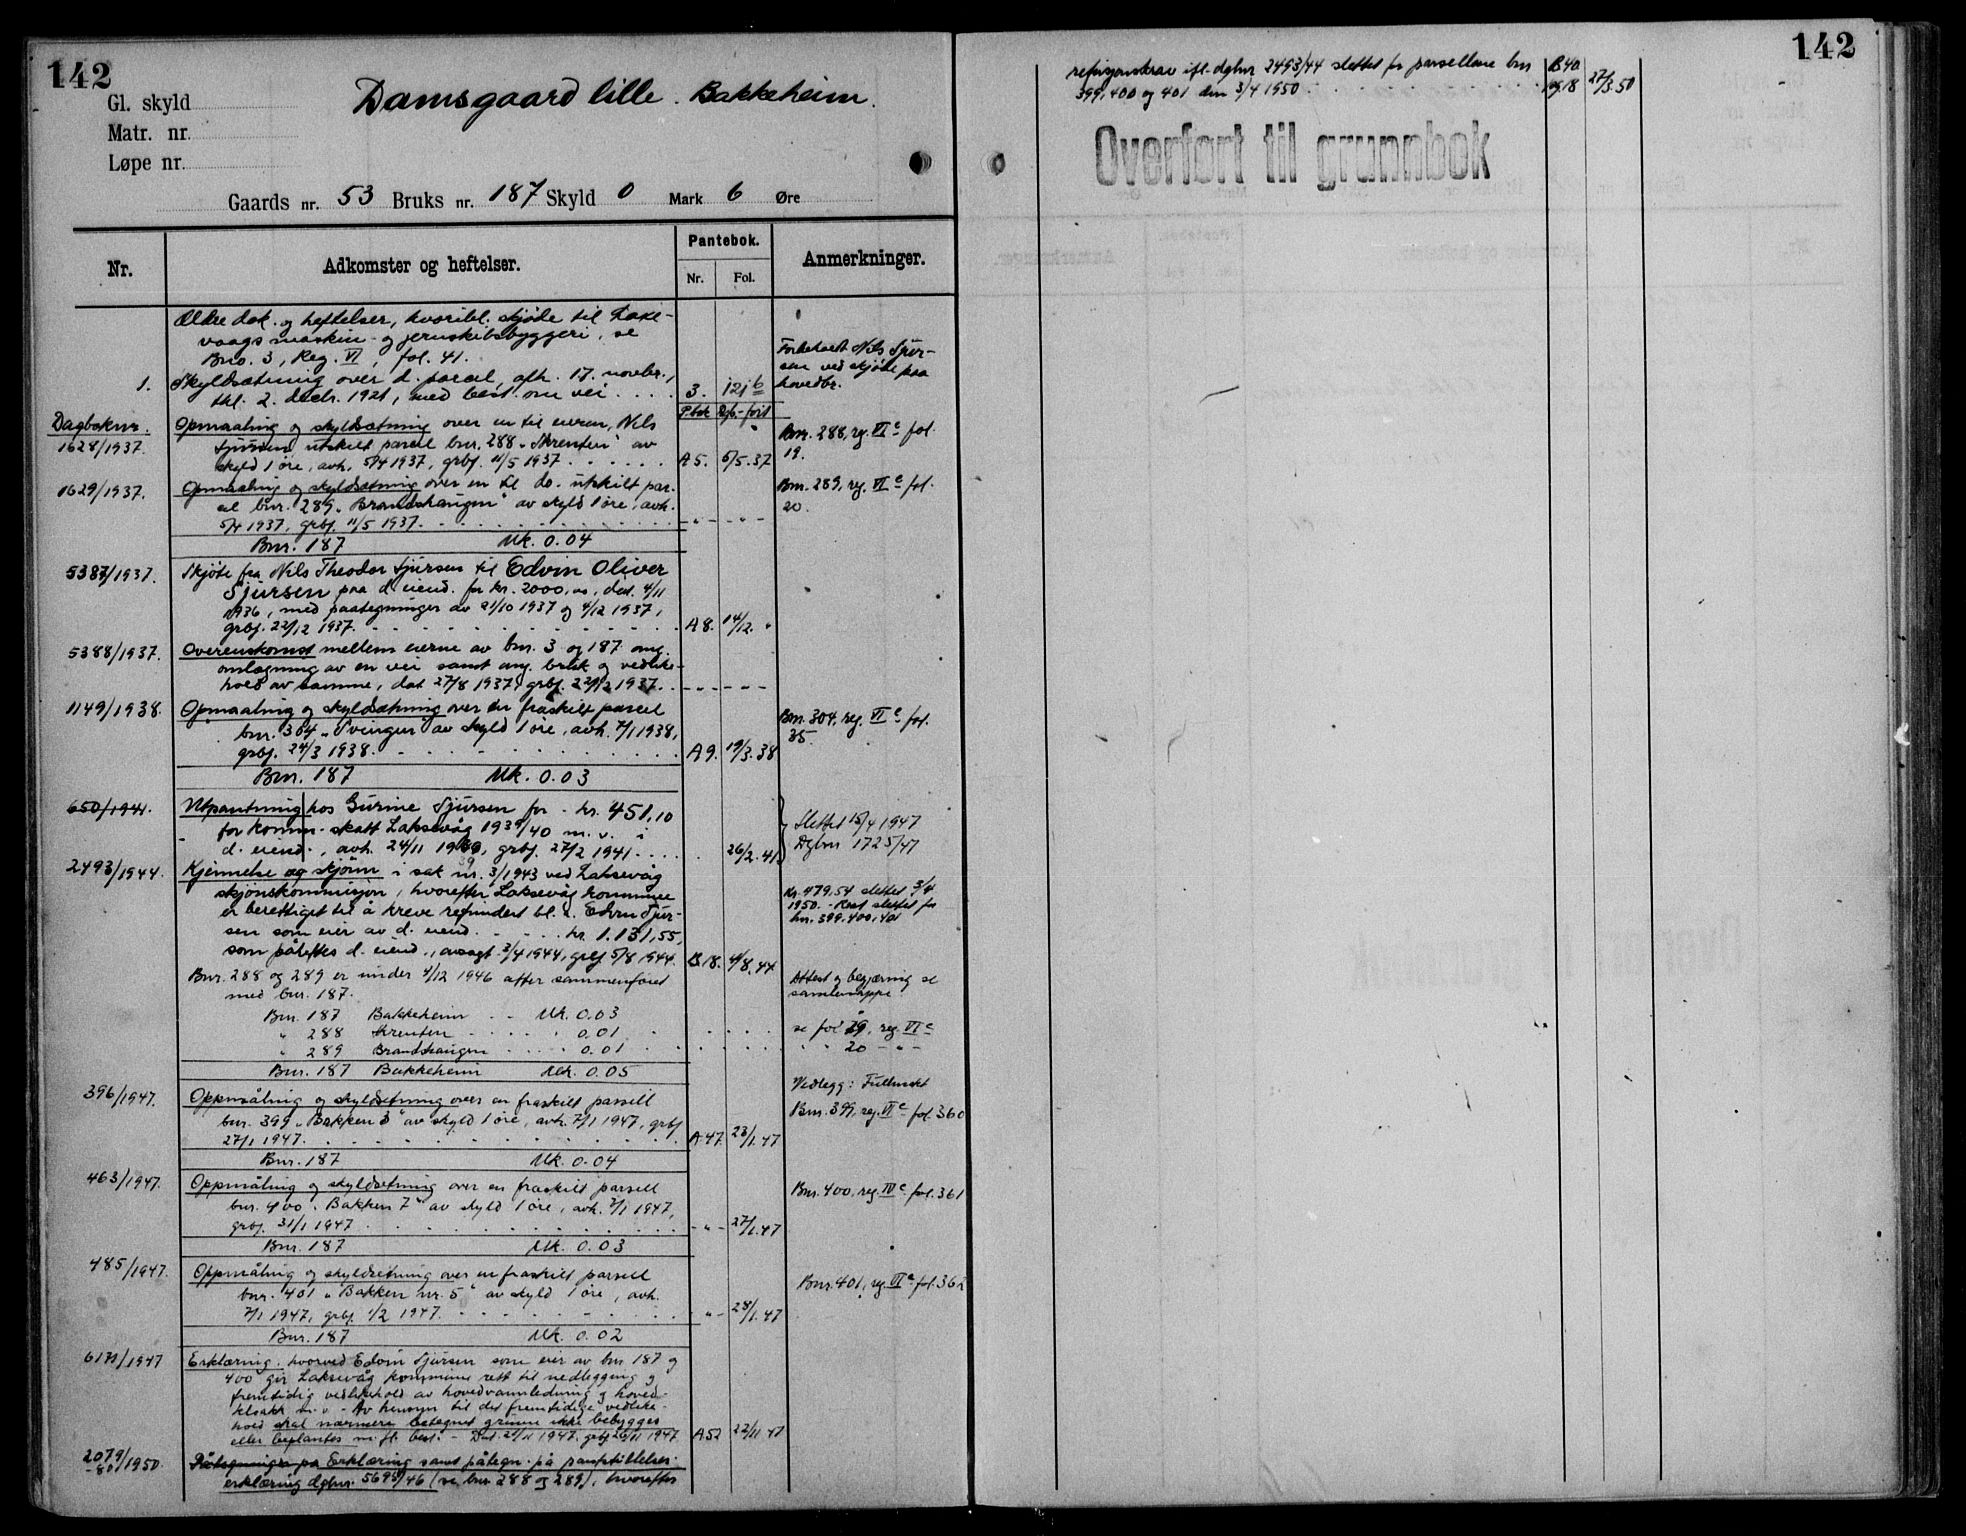 142
Gl. skyld
Damsgaard lille. Bakkeheim.
Matr. nr.
Løpe nr.
Gaards nr. 53 Bruks nr. 187 Skyld 0 Mark 6 Øre
Nr.
Adkomster og heftelser.
Pantebok.
Nr. Fol.
Anmerkninger.
Ældre dok. og heftelser, hvoribl. skjøte til Laxe-
vaags maskin- og jernskibsbyggeri, se
Bno. 3, Reg. VI, fol. 41.
1. Skyldsætning over d. parcel, afh. 17. novbr.,
thl. 2. decbr. 1921, med best. om vei . . . . 3. 121b
Forbeholdt Nils Sjur-
sen ved skjøte paa
hovedbr.
P.bok Dgb.-ført
Dagboknr.
1628/1937. Opmaaling og skyldsætning over en til eieren, Nils
Sjursen utskilt parcel bnr. 288 "Skrenten" av
skyld 1 øre, avh. 5/4 1937, grbf. 11/5 1937. . . . . . A 5. 5/5.37
Bnr. 288, reg. VI c fol.
19.
1629/1937. Opmaaling og skyldsætning over en til do. utskilt par-
cel bnr. 289 "Brandshaugen" av skyld 1 øre, avh.
5/4 1937, grbf. 11/5 1937. - " - - " -
Bnr. 289, reg. VI c fol.
20.
Bnr. 187 Mk. 0.04
5387/1937. Skjøte fra Nils Theodor Sjursen til Edvin Oliver
Sjursen paa d. eiend. for kr. 2000,oo, dat. 4/11
1936, med paategninger av 21/10 1937 og 4/12 1937,
grbf. 22/12 1937. A 8. 14/12. "
5388/1937. Overenskomst mellem eierne av bnr. 3 og 187 ang.
omlægning av en vei samt ang. bruk og vedlike-
hold av samme, dat 27/8 1937, grbf. 22/12 1937. . - - - - -
1149/1938. Opmaaling og skyldsætning over en fraskilt parcel
bnr. 304 "Svingen" av skyld 1 øre, avh. 7/1 1938,
grbf. 24/3 1938. A 9. 19/3.38
Bnr. 304, reg. VI c fol.
35.
Bnr. 187 Mk. 0.03
650/1941. Utpantning hos Gurine Sjursen for kr. 451,10
for komm. skatt Laksevåg 1939/40 m.v. i
d. eiend., avh. 24/11 1939, grbf. 27/2 1941 . . . . 26/2.41
Slettet 15/4 1947
Dgbnr 1725/47
2493/1944. Kjennelse og skjønn i sak nr. 3/1943 ved Laksevåg
skjønskommisjon, hvorefter Laksevåg kommune
er berettiget til å kreve refundert bl. a. Edvin Sjur-
sen som eier av d. eiend. . . . . kr. 1.131,55,
som påheftes d. eiend., avsagt 3/4 1944, grbf 5/8 1944. B.18. 4/8.44
Kr. 479,54 slettet 3/4
1950. - Rest slettet for
bnr. 399, 400, 401
Bnr. 288 og 289 er under 4/12 1946 atter sammenføiet
med bnr. 187.
Attest og begjæring se
samlemappe.
Bnr. 187 Bakkeheim . . Mk. 0.03
" 288 Skrenten . . . . 0.01 . . . . . se fol 19, reg. VI c
" 289 Brandshaugen . . . . 0.01 . . . . . " " 20 - " -
Bnr. 187 Bakkeheim Mk. 0.05
396/1947. Oppmåling og skyldsetning over en fraskilt parsell
bnr. 399 "Bakken 3" av skyld 1 øre, avh. 7/1 1947, grbf
27/1 1947. A 47. 23/1.47
Vedlegg: Fullmakt
Bnr. 399, reg. VI c fol. 360
Bnr. 187 Mk. 0.04
463/1947. Oppmåling og skyldsetning over en fraskilt parsell
bnr. 400 "Bakken 7" av skyld 1 øre, avh. 7/1 1947,
grbf. 31/1 1947 - " - 27/1.47
Bnr. 400, reg. VI c fol. 361
Bnr. 187 Mk. 0.03
485/1947. Oppmåling og skyldsetning over en fraskilt parsell
bnr. 401 "Bakken nr. 5" av skyld 1 øre, avh.
7/1 1947, grbf. 1/2 1947. - " - 28/1.47
Bnr. 401, reg. VI c fol. 362
Bnr. 187 Mk. 0.02
6171/1947 Erklæring, hvorved Edvin Sjursen som eier av bnr 187 og
400 gir Laksevåg kommune rett til nedlegging og
fremtidig vedlikehold av hovedvannledning og hoved-
kloakk m.v. - Av hensyn til det fremtidige vedlike-
hold skal nærmere betegnet grunn ikke bebygges
eller beplantes m.fl. best. - Dat. 21/11 1947, grbf 26/11 1947. A 52 22/11 47
2079/-80/1950. Påtegninger på Erklæring samt påtegn. på panstillelses-
erklæring dgbnr. 5695/46 (se bnr 288 og 289), hvorefter
142
refusjonskrav ifl. dgbnr 2493/44 slettet for parsellene bnr B.40
399, 400 og 401 den 3/4 1950 . . . . . . . og 18 27/3.50
Overført til grunnbok